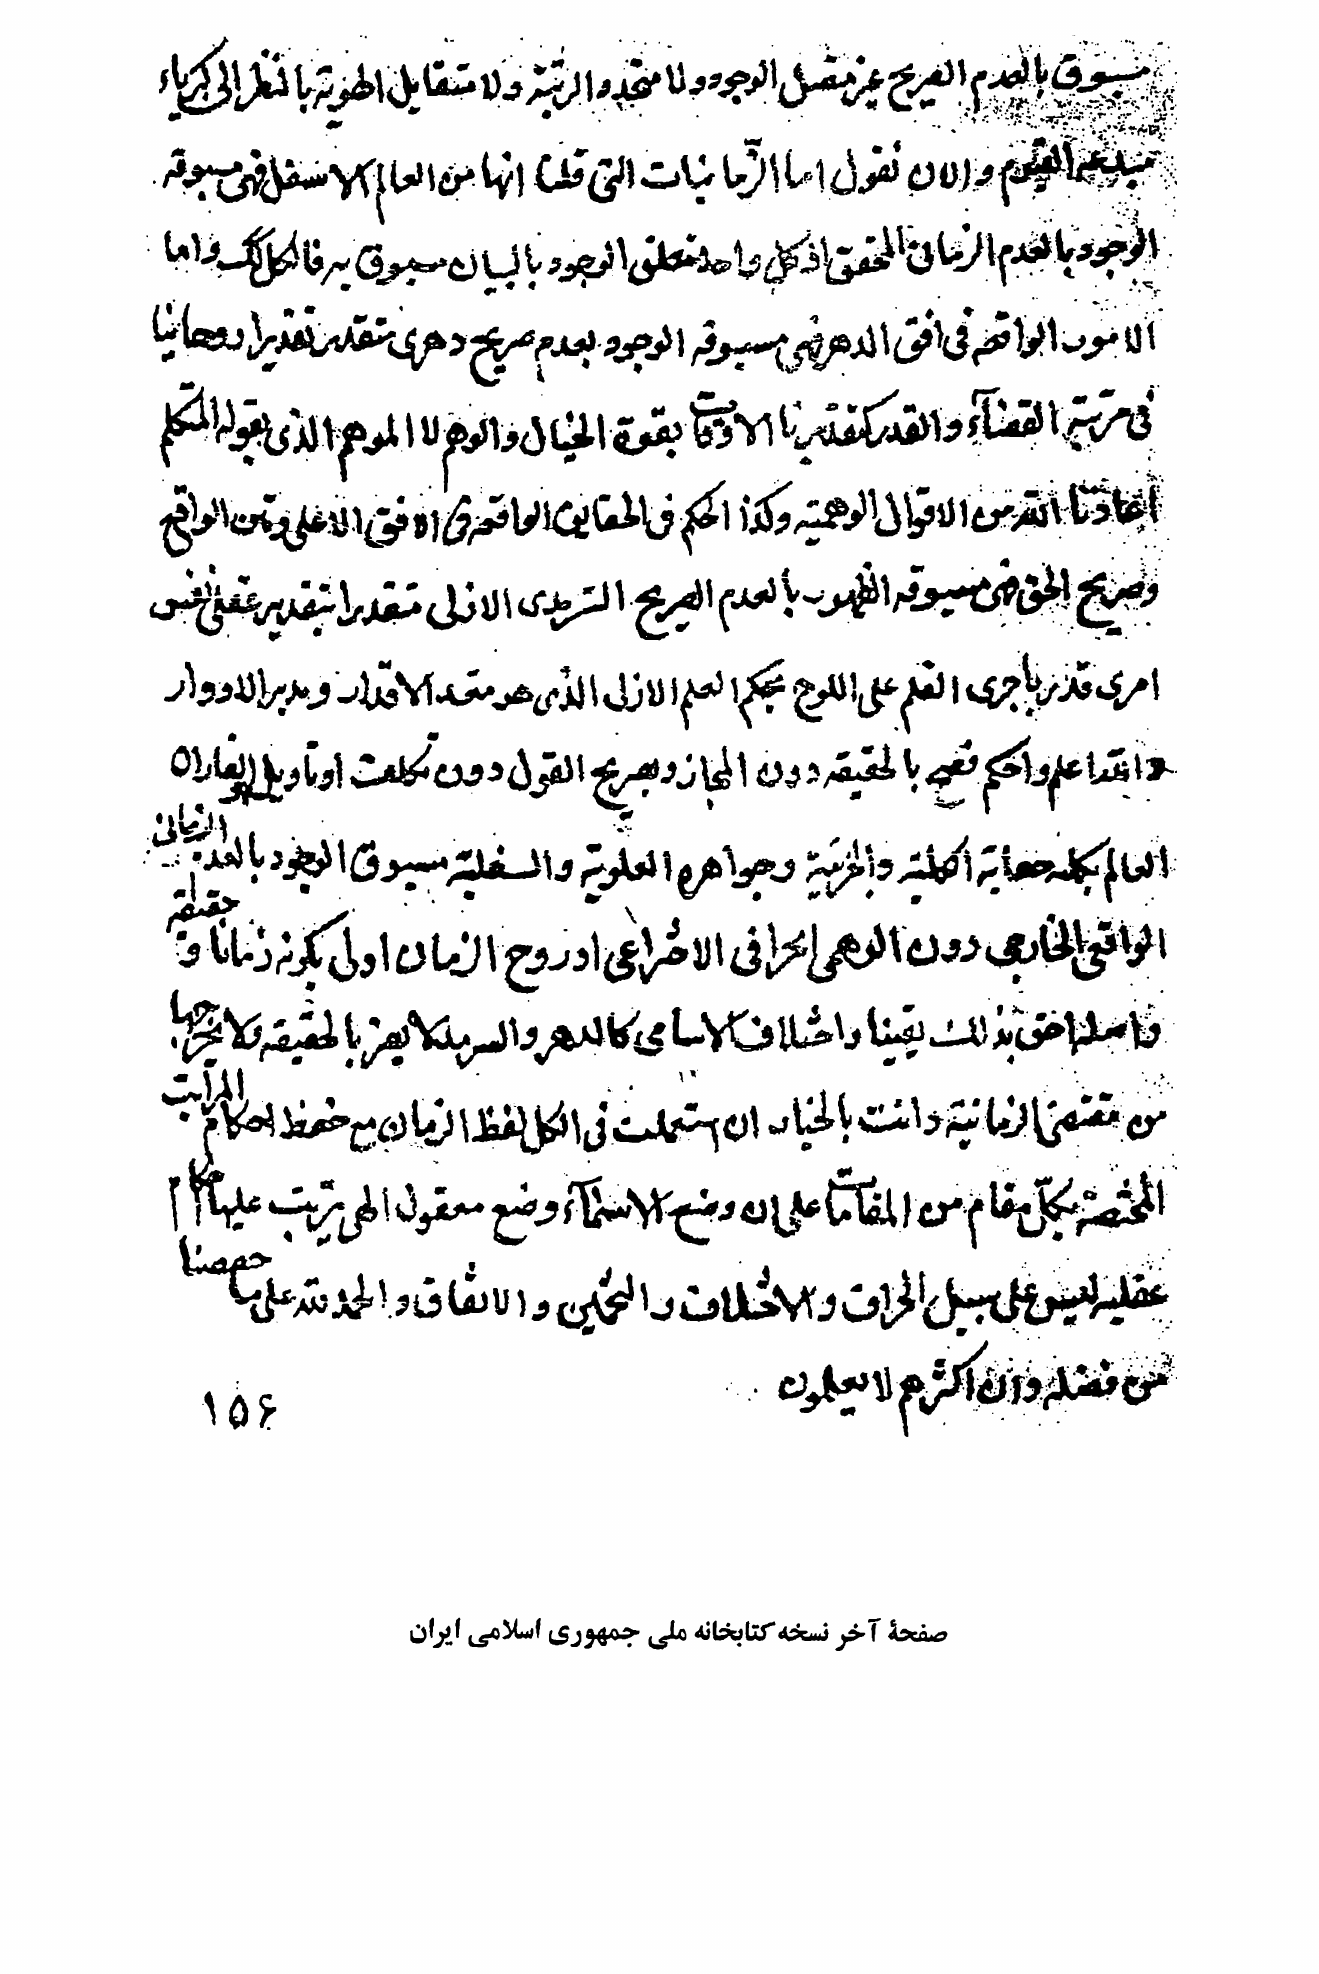 مسبوق بالعدم الصريح غير متصل الوجود ولا متحد الرتبة ولا متقابل الهوية بالنظر الى كبرياء
مبدعه القيوم والان نقول اما الزمانيات التى قلنا انها من العالم الاسفل فهى مسبوقه
الوجود بالعدم الزمانى المحقق اذ كل واحد الوجود بالبيان مسبوق به فالكل كك واما
الامور الواقعه فى افق الدهر فهى مسبوقه الوجود بعدم صريح دهرى متقدر تقديرا روحانيا
فى مرتبة القضآء والقدر كتقدير الاوقات بقوة الخيال والوهم لا الموهم الذى يقوله المتكلم
اعاذنا الله من الاقوال الوهميه وكذا الحكم فى الحقايق الواقعه فى الافق الاعلى ومتن الواقع
وصريح الحق فهى مسبوقه الظهور بالعدم الصريح السرمدى الازلى متقدرا بتقدير عقلى نفس
امرى قدر ما جرى القلم على اللوح بحكم العلم الازلى الذى هو مقدر الاقدار ومدبر الادوار
والله اعلم واحكم فصح بالحقيقه دون المجاز وبصريح القول دون تكلف او تاويل القول ان
العالم بكله الكلية والجزئية وجواهره العلوية والسفلية مسبوق الوجود بالعدم الزمانى
الواقعى الخارجى دون الوهمى الجزافى الاختراعى اذ روح الزمان اولى بكونه زمانا وحقيقته
واصله احق بذلك يقينا واختلاف الاسامى كالدهر والسرمد لا يضر بالحقيقه ولا يخرجها
من مقتضى الزمانية وانت بالخيار ان استعملت فى الكل لفظ الزمان مع حفظ احكام المراتب
المختصة بكل مقام من المقامات على ان وضع الاسمآء وضع معقول الهى يترتب عليها احكام
عقليه ليس على سبيل الجزاف والاختلاف والتخمين والاتفاق والحمد لله على ما خصصنا
من فضله وان اكثرهم لا يعلمون
۱۵۶
صفحهٔ آخر نسخه کتابخانه ملی جمهوری اسلامی ایران